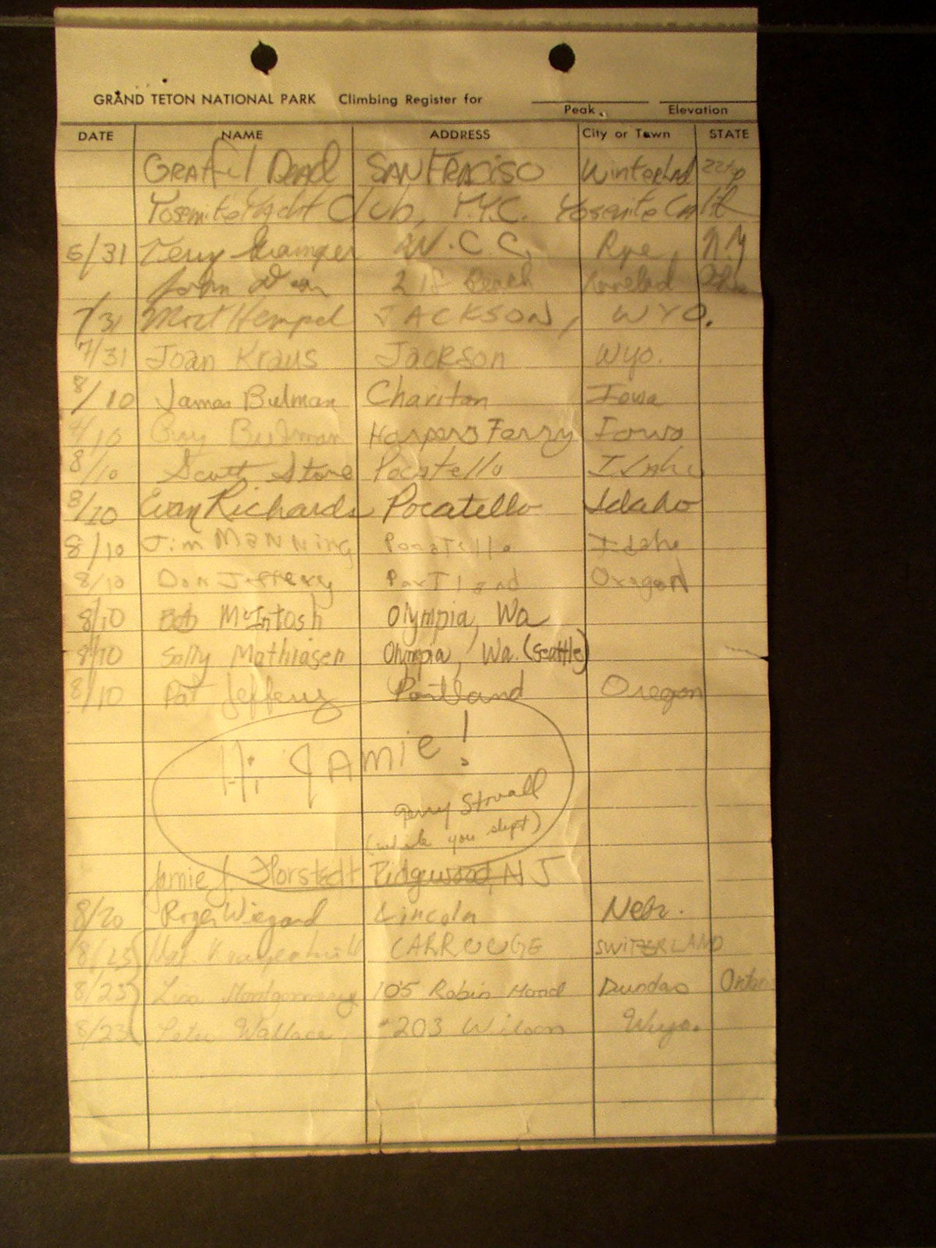 GRAND TETON NATIONAL PARK Climbing Register for
Peak Elevation
DATE NAME ADDRESS City or Town STATE
Gratful Dead SAN FRACISO Winterland
Yosemite Yacht Club, Y.Y.C. Yosemite Calif
6/31 Terry W.C.C, Rye, N.Y
John 218 Beach
7/31 Mort Hempel JACKSON, WYO.
7/31 Joan Kraus Jackson Wyo.
8/10 James Bulman Chariton Iowa
8/10 Guy Bulman Harpers Ferry Iowa
8/10 Scott Stone Pocatello Idaho
8/10 Evan Richards Pocatello Idaho
8/10 Jim Manning Pocatello Idaho
8/10 Don Jeffery Portland Oregon
8/10 Bob McIntosh Olympia, Wa
8/10 Sally Mathiasen Olympia, Wa. (Seattle)
8/10 Pat Jeffery Portland Oregon
Hi JAmie!
Stovall
(while you slept)
Jamie J. Florstedt Ridgewood, NJ
8/20 Roger Wiegand Lincoln Nebr.
8/23 CARROUGE SWITZERLAND
8/23 Lisa Montgomery 105 Robin Hood Dundas Ontario
8/23 Peter Wallace #203 Wilson Wyo.